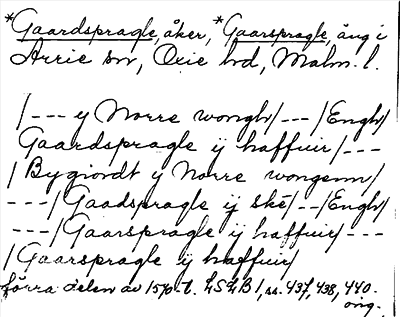 *Gaardspragle, åker, *Gaarspragle, äng i
Arrie sn, Oxie hd, Malm. l.
/--- y Norre wongh/---/Engh/
Gaardspragle ij haffuir/---
/Bygiordt y Norre wongenn/
---/Gaadspragle ij skè/--/Engh/
---/Gaarspragle ij haffuir/---
/Gaarspragle ij haffuir/
förra delen av 1570-t. LSLB 1, ss. 437, 438, 440.
orig.